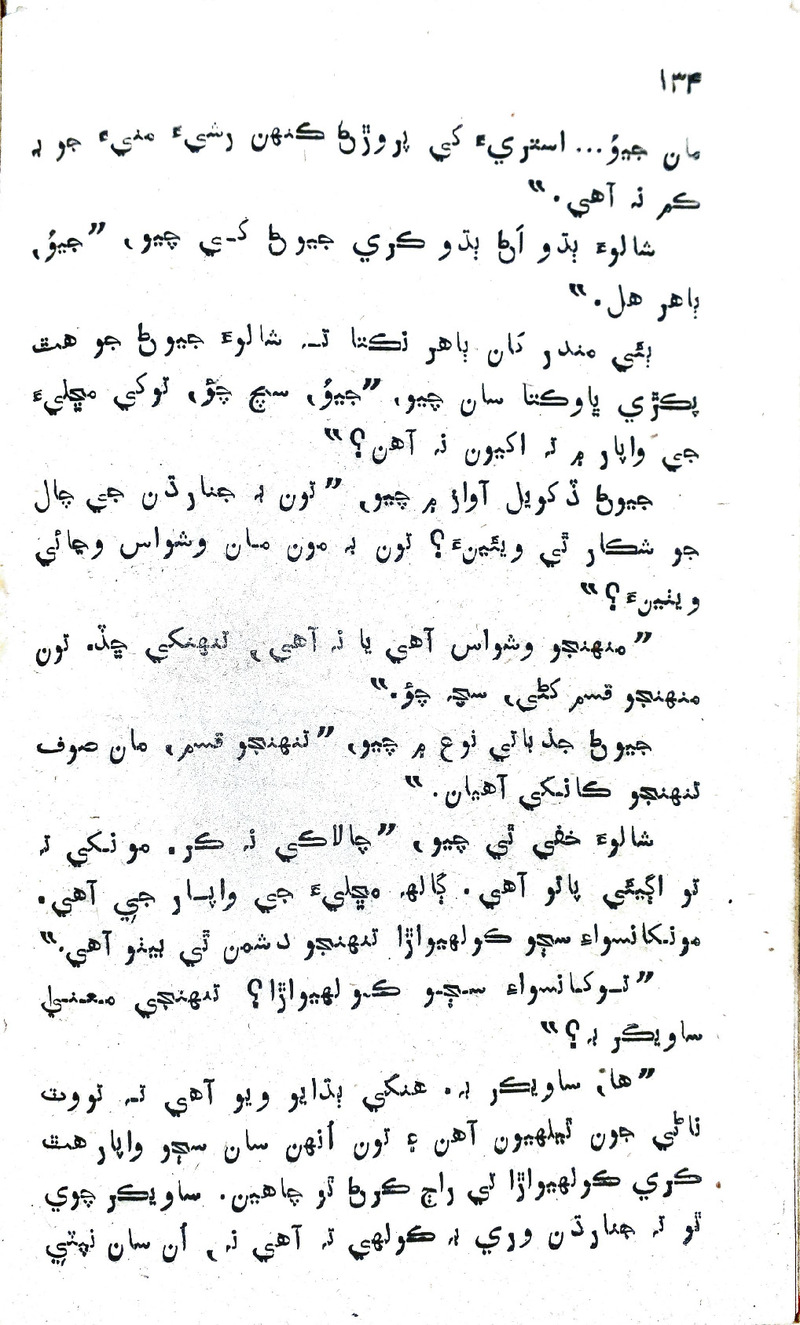 ۱۳۴
مان جيوُ... استريءَ کي پروڙڻ ڪنهن رشيءَ منيءَ جو بہ
ڪم نہ آهي.“
شالوءَ ٻڌو اڻ ٻڌو ڪري جيوڻ کي چيو، ”جيوُ،
ٻاهر هل.“
ٻئي مندر کان ٻاهر نڪتا تہ شالوءَ جيوڻ جو هٿ
پڪڙي ڀاوڪتا سان چيو، ”جيوُ، سچ چؤ، توکي مڇليءَ
جي واپار ۾ تہ اکيون نہ آهن؟“
جيوڻ ڏکويل آواز ۾ چيو، ”تون بہ جنارڌن جي چال
جو شڪار ٿي ويئينءَ؟ تون بہ مون مان وشواس وڃائي
ويٺينءَ؟“
”منهنجو وشواس آهي يا نہ آهي، تنهنکي ڇڏ. تون
منهنجو قسم کڻي، سچ چؤ.“
جيوڻ جذباتي نوع ۾ چيو، ”تنهنجو قسم، مان صوف
تنهنجو کانکي آهيان.“
شالوءَ خفي ٿي چيو، ”چالاڪي نہ ڪر. مونکي تہ
تو اڳيئي پاتو آهي. ڳالهہ مڇليءَ جي واپار جي آهي.
مونکانسواءِ سڄو ڪولهيواڙا تنهنجو دشمن ٿي بيٺو آهي.“
”توکانسواءِ سڄو ڪولهيواڙا؟ تنهنجي معنيٰ
ساويڪر بہ؟“
”ها، ساويڪر بہ. هنکي ٻڌايو ويو آهي تہ تووٽ
ناڻي جون ٿيلهيون آهن ۽ تون اُنهن سان سڄو واپار هٿ
ڪري ڪولهيواڙا تي راڄ ڪرڻ ٿو چاهين. ساويڪر چوي
ٿو تہ جنارڌن وري بہ ڪولهي تہ آهي نہ، اُن سان نپٽي